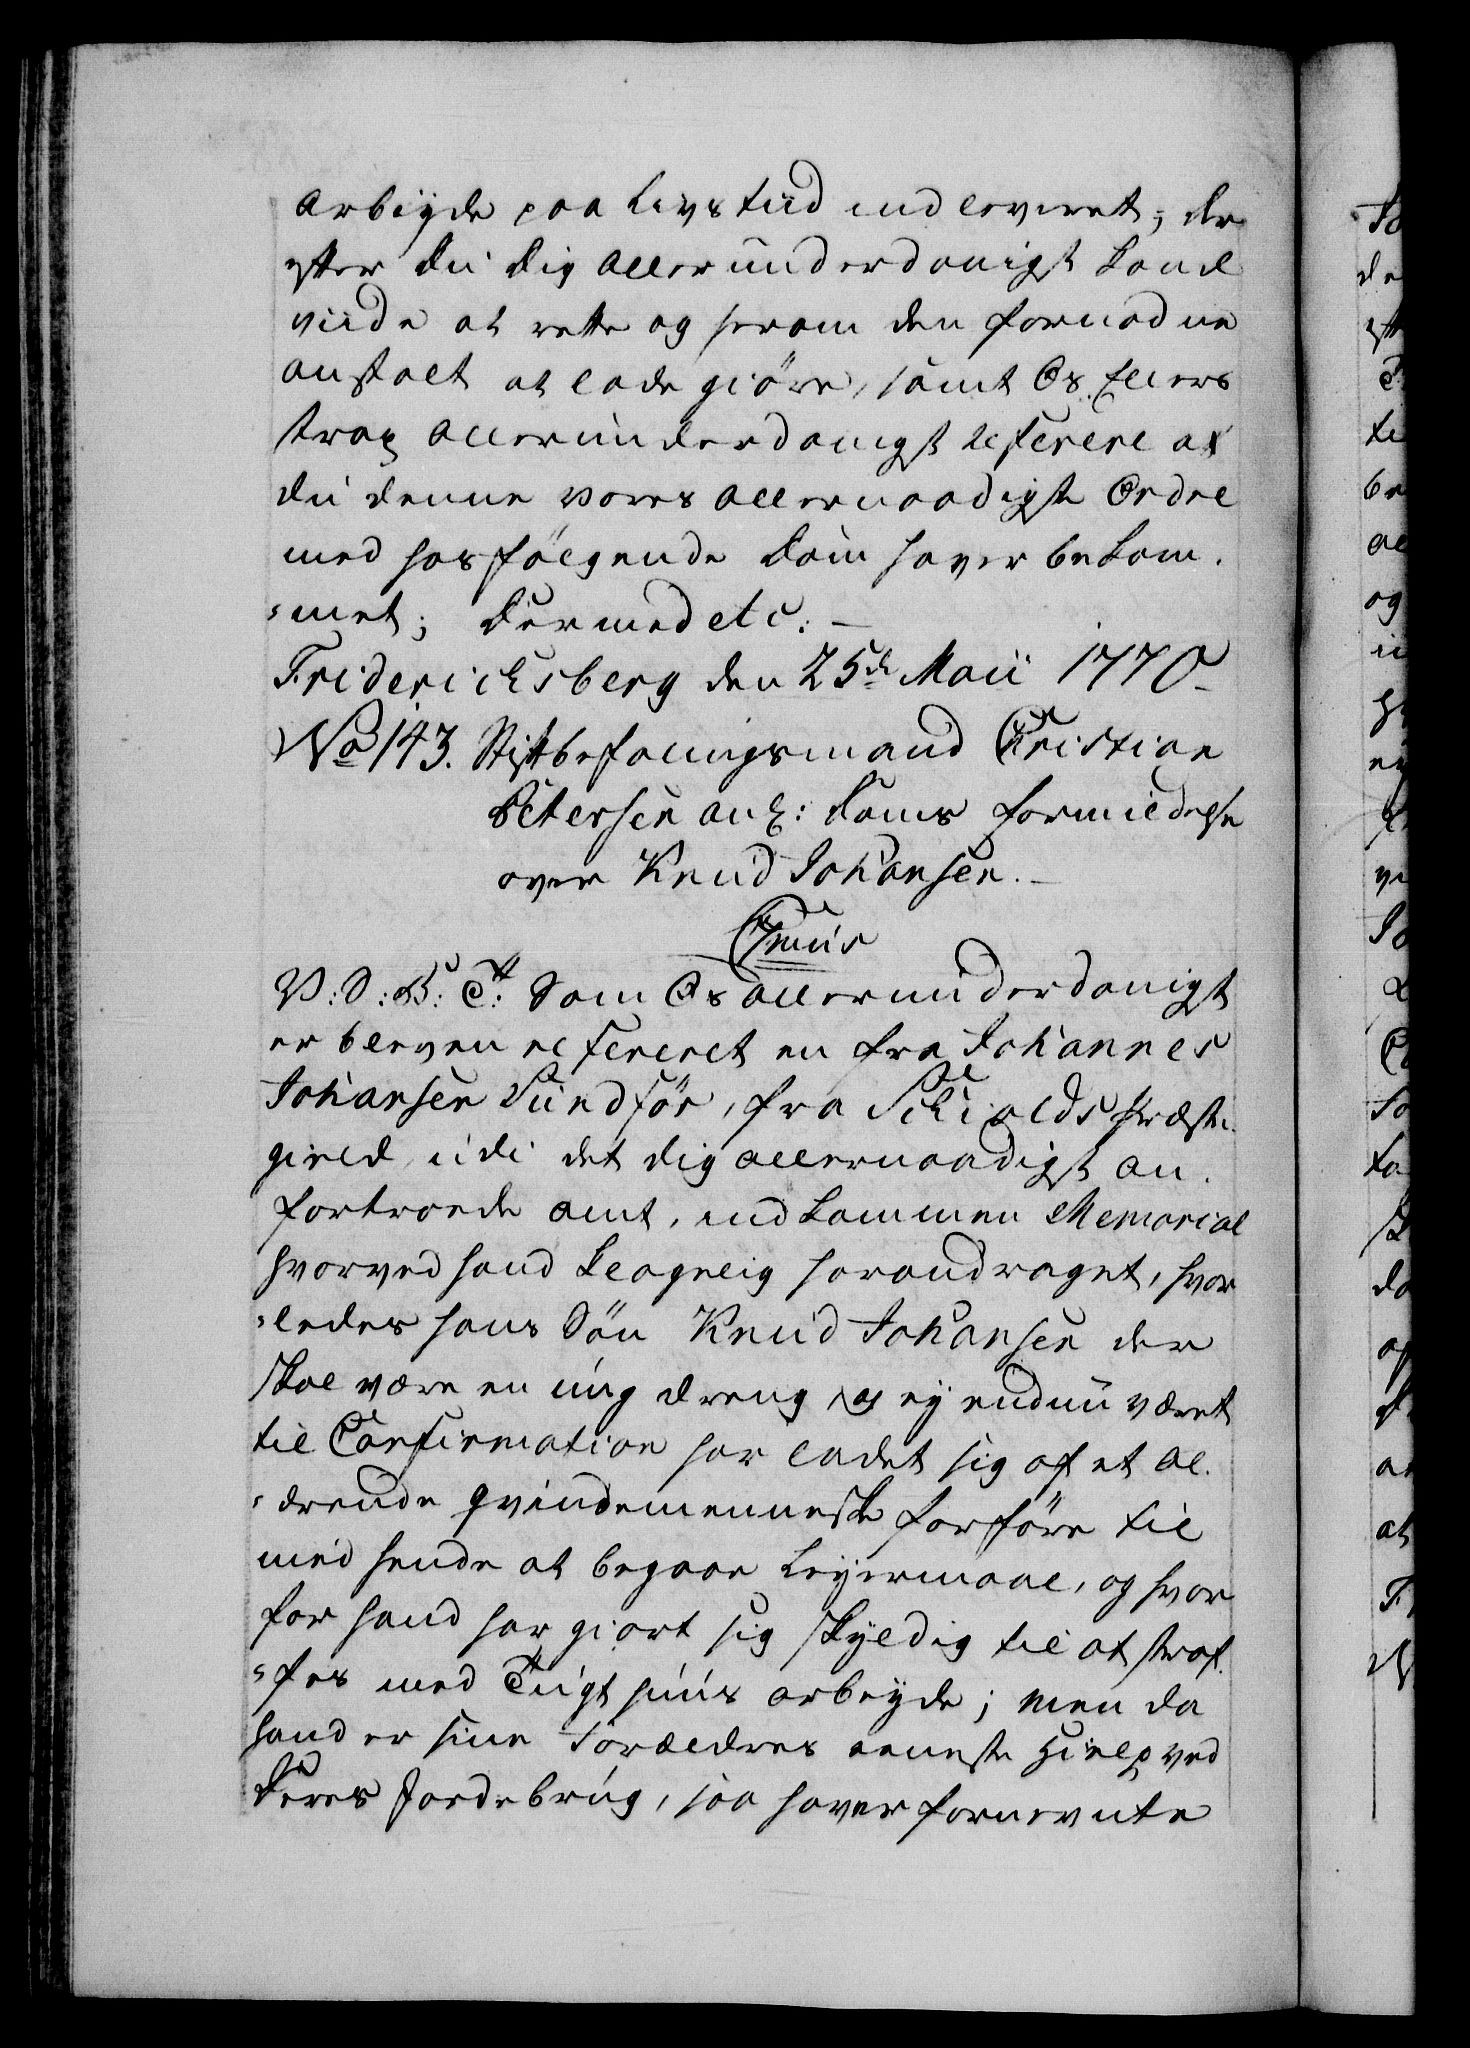 arbeyde paa Livstiid indleveret; der
efter du dig allerunderdanigst haver
viide at rette og herom den fornødne
anstalt at lade giøre, samt Os ellers
strax allerunderdanigst referere at
du denne Vores allernaadigste Ordre
med hosfølgende Dom haver bekom-
=met; Dermed etc: —
Friderichsberg den 25de Maii 1770
No 143. Stiftbefalingsmand Christian
Petersen anl: Doms formildelse
over Knud Johansen. —
C7mus
V: S: B: T: Som Os allerunderdanigst
er bleven refereret en fra Johannes
Johansen Sundfør, fra Schiolds Præste-
gield, udi det dig allernaadigst an-
fortroede amt, indkommen Memorial
hvorved hand klagelig haver andraget, hvor
=ledes hans Søn Knud Johansen der
skal være en ung dreng og ey endnu været
til Confirmation har ladet sig af et al-
=drende qvindemenneske forføre til
med hende at begaae Leyermaal, og hvor
for hand har giort sig skyldig til at straf-
=fes med Tugthuus arbeyde; men da
hand er sine Forældres eeneste Hielp ved
Deres Jordebrug, saa haver fornevnte